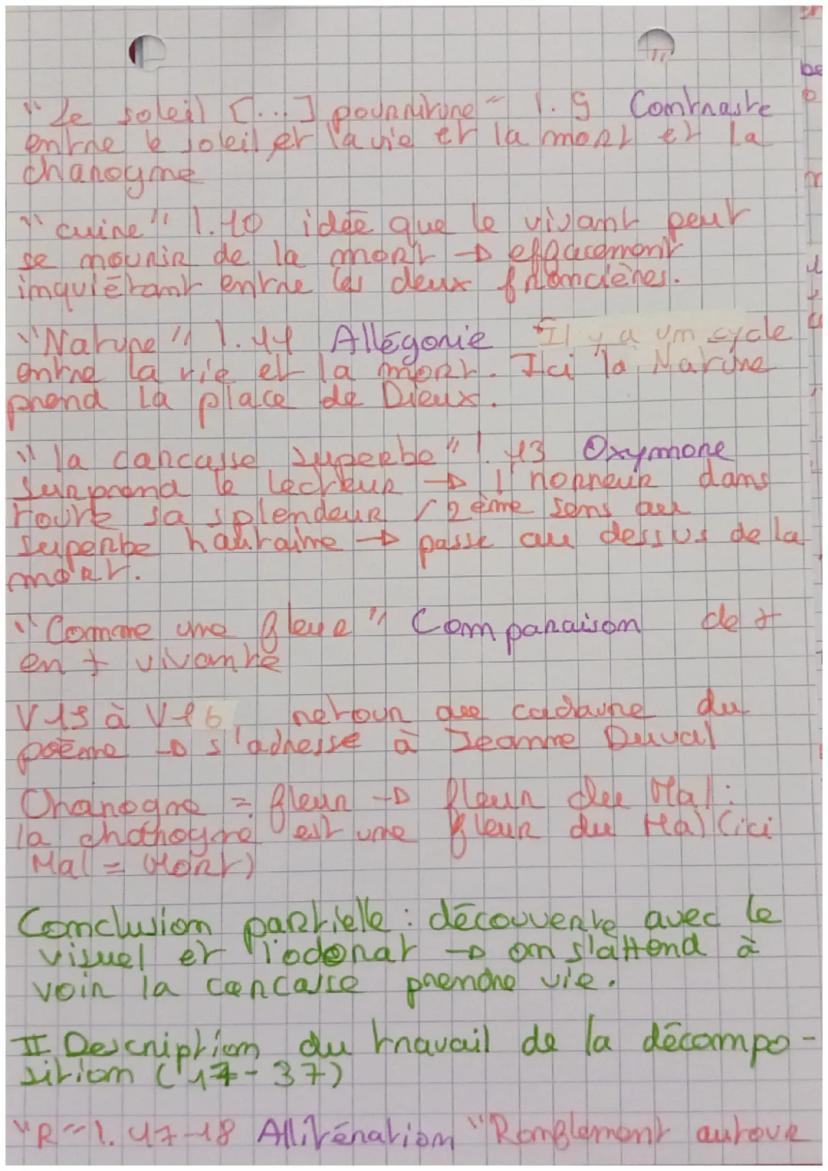 "Le soleil [...] pourriture" l. 9 Contraste
entre le soleil et la vie et la mort et la
charogne
"cuire" l. 10 idée que le vivant peut
se nourrir de la mort → effacement
inquiétant entre les deux frontières.
"Nature" l. 11 Allégorie Il y a un cycle
entre la vie et la mort. Ici la Nature
prend la place de Dieux.
"la carcasse superbe" l. 13 Oxymore
Surprend le lecteur → l'horreur dans
toute sa splendeur / 2ème sens au
superbe hautraine → passe au dessus de la
mort.
"Comme une fleur" Comparaison de +
en + vivante
V 15 à V 16 retour au cadavre du
poème → s'adresse à Jeanne Duval
Charogne = fleur → fleur du Mal :
la charogne est une fleur du Mal (ici
Mal = Mort)
Conclusion partielle : découverte avec le
visuel et l'odorat → on s'attend à
voir la carcasse prendre vie.
II Description du travail de la décompo-
sition (17-37)
"R" l. 17-18 Allitération "Ronflement autour